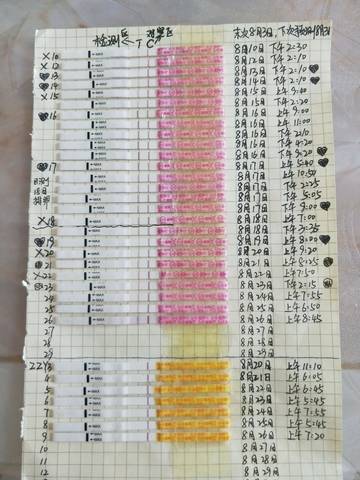 末次8月3日, 下次预测8月31
检测区 ← T C 对照区
X 10 8月10日 下午2:30
X 12 8月12日 下午2:10
13 8月13日 下午2:10
14 8月14日 下午2:10
X 15 8月15日 上午9:40
8月15日 下午2:20
16 8月16日 上午9:00
8月16日 上午11:00
8月16日 下午2:10
8月16日 下午4:20
8月16日
17 8月17日 上午5:40
8月17日 上午10:50
8月17日 下午2:25
8月17日 下午5:05
8月17日 下午9:00
X 18 8月18日 上午7:00
8月18日 下午3:35
19 8月19日 上午8:00
X 20 8月20日 上午9:20
21 8月21日 上午8:25
X 22 8月22日 上午7:50
23 8月23日 下午2:15
24 8月24日 上午7:55
25 8月25日 上午6:50
26 8月26日 上午8:45
27 8月27日
28 8月28日
29 8月29日
ZZY 3 8月20日 上午11:10
4 8月21日 上午6:05
5 8月22日 上午6:45
6 8月23日 上午5:45
7 8月24日 上午7:55
8 8月25日 上午5:45
9 8月26日 上午7:20
10 8月27日
11 8月28日
12 8月29日